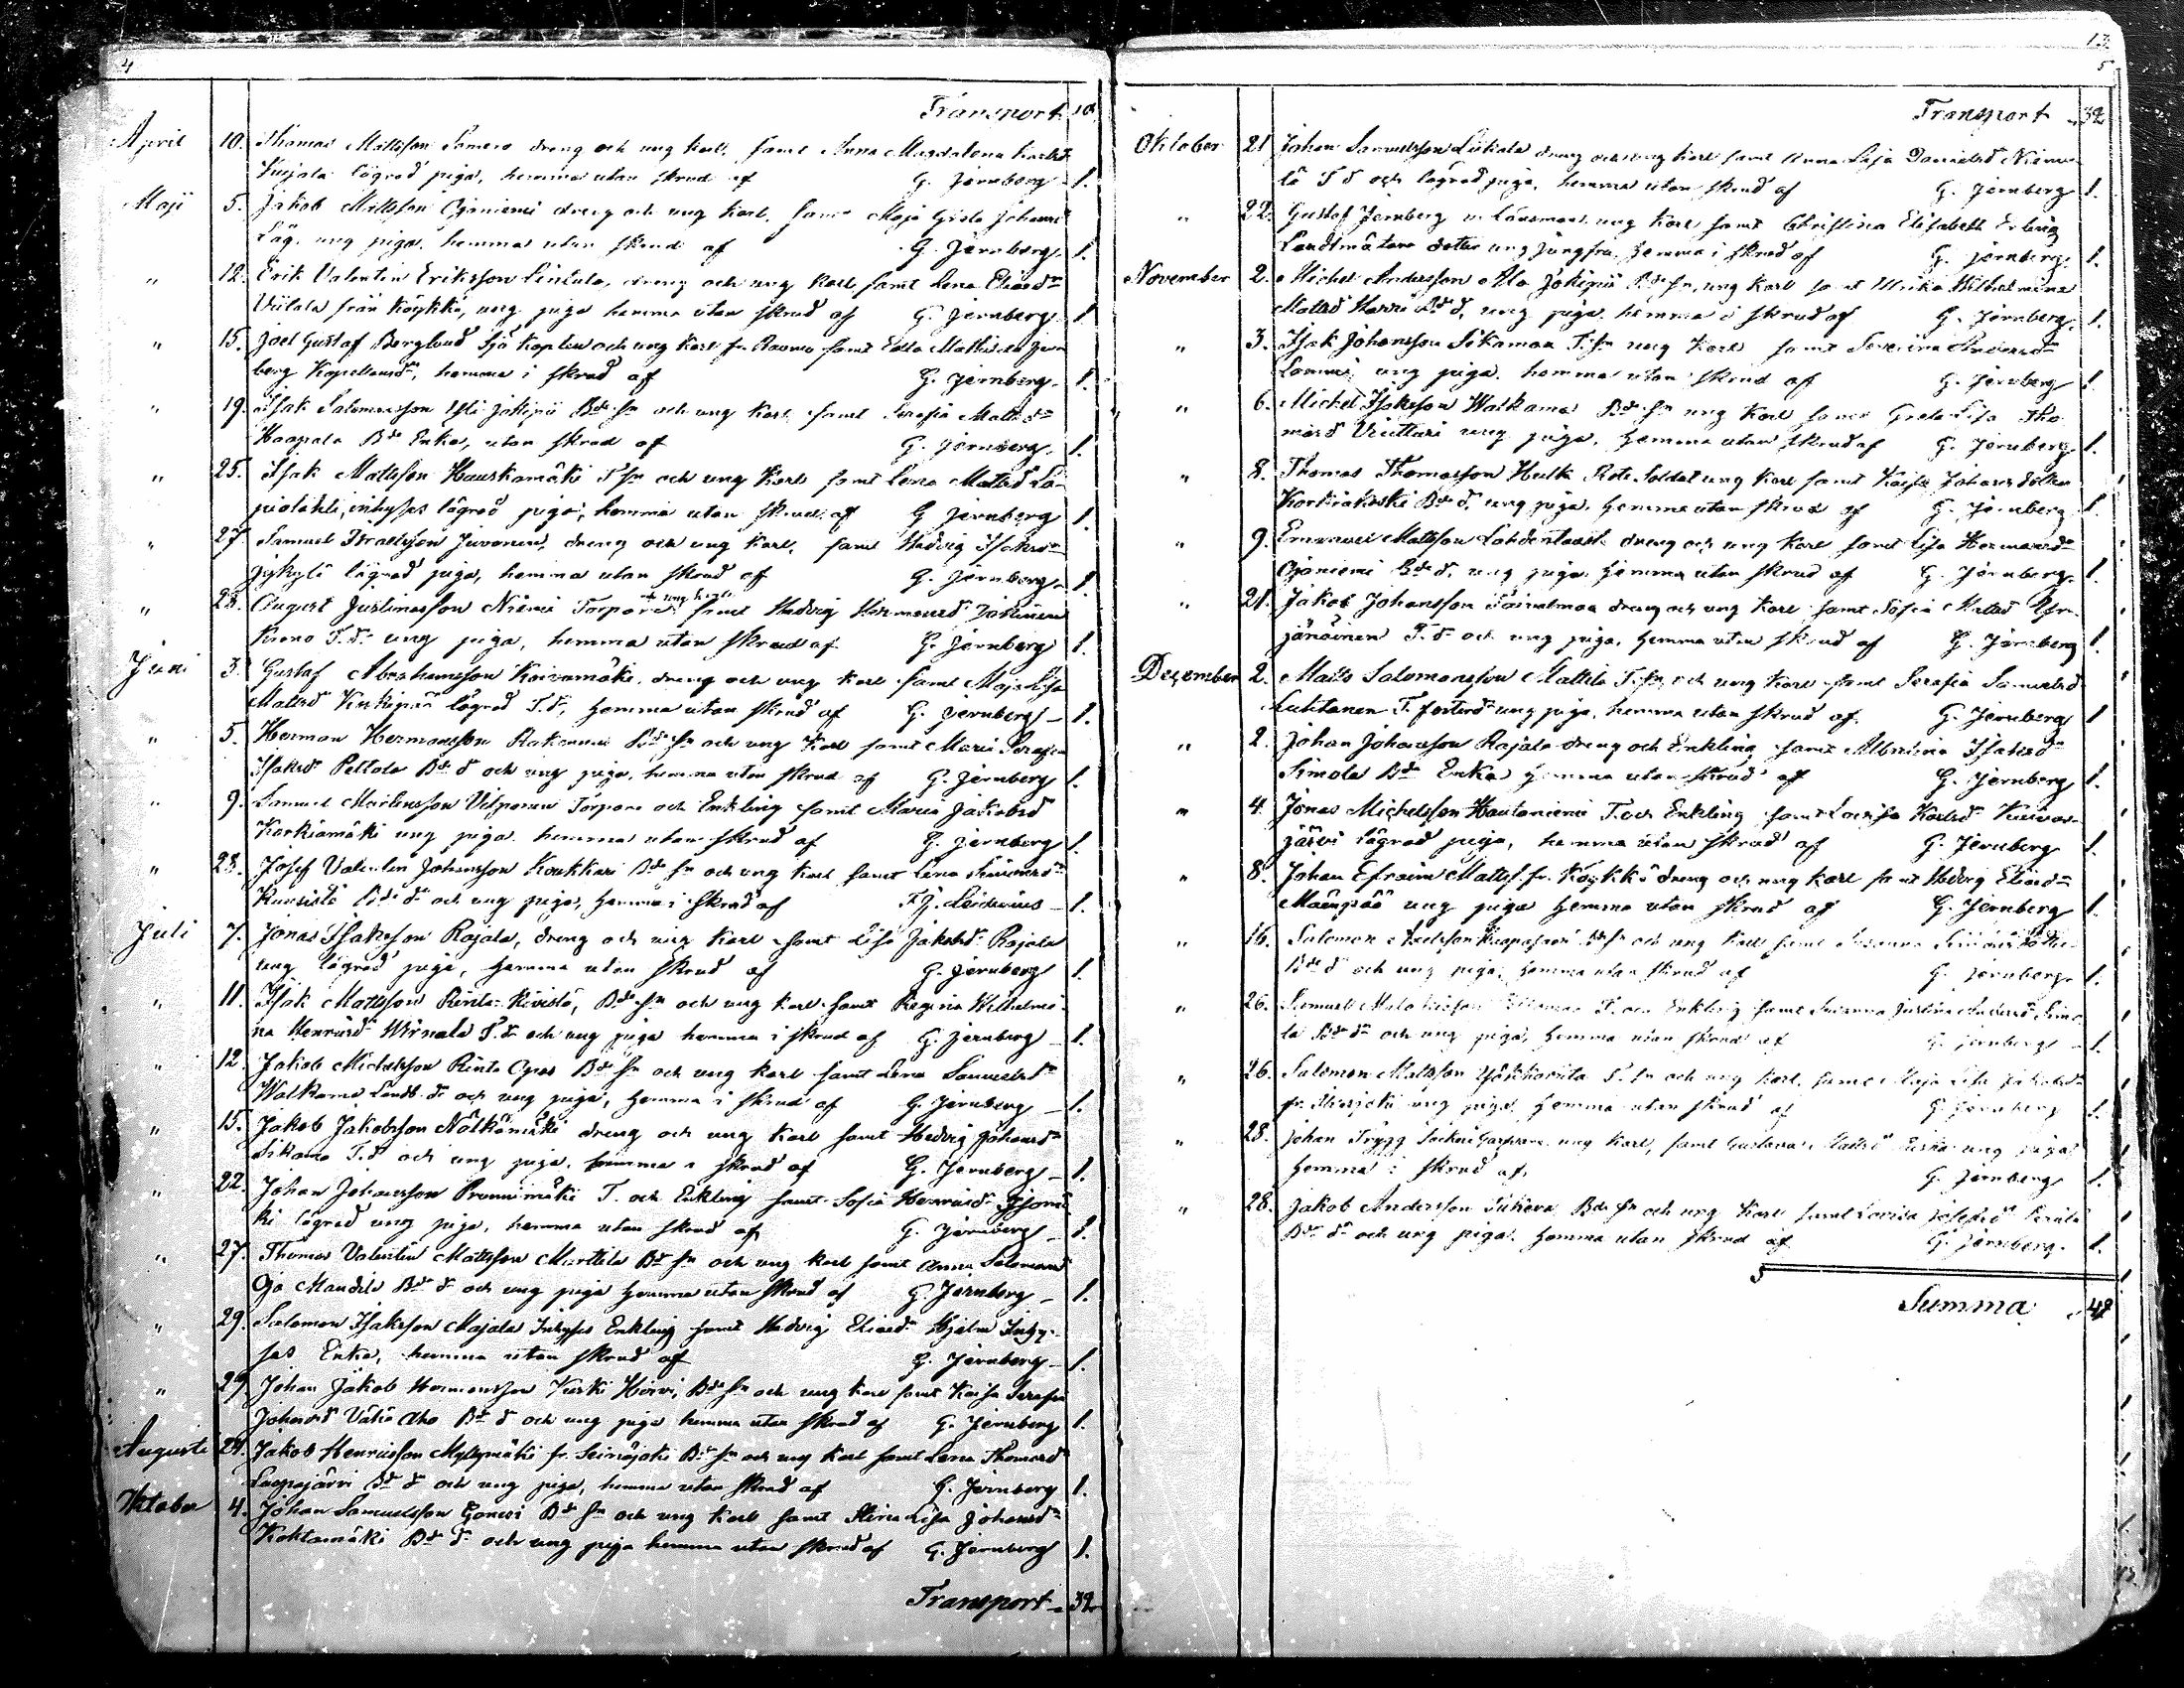 4
Transport 10
April 10. Thomas Mattsson Samero dreng och ung karl, samt Anna Magdalena
Kujala lägrad piga, hemma utan skrud af G. Jernberg 1.
Maji 5. Jakob Mattsson Ojaniemi dreng och ung karl, samt Maja Greta Johansd
ung piga, hemma utan skrud af G. Jernberg 1.
" 12. Erik Valentin Eriksson Lintula, dreng och ung karl samt Lena Eliasdr
Viitala från Köykkä, ung piga hemma utan skrud af G. Jernberg 1
" 15. Joel Gustaf Berglund Sjö Kapten och ung karl fr. Raumo samt Edla Mathilda Jern
berg Kapellansdr, hemma i skrud af G. Jernberg 1.
" 19. Isak Salomonsson Yli Jokipii Bde sn och ung karl samt Serafia Mattsdr
Haapala Bde Enka, utan skrud af G. Jernberg 1.
" 25. Isak Mattsson Hauskamäki T sn och ung karl samt Lena Mattsd
inhyses lägrad piga, hemma utan skrud af G Jernberg 1.
" 27 Samuel Israelsson Juvonen, dreng och ung karl, samt Hedvig Isaksdr
Jykylä lägrad piga, hemma utan skrud af G. Jernberg 1.
och ung karl
" 28. August Justinasson Niemi Torpare samt Hedvig Hermansd Jokinen
T. dr ung piga, hemma utan skrud af G. Jernberg 1.
Juni 3. Gustaf Abrahamsson Koivumäki, dreng och ung karl samt Maja Lisa
Mattsd lägrad T. dr, hemma utan skrud af G. Jernberg 1.
" 5. Herman Hermansson Bde sn och ung karl samt Maria Serafia
Isaksdr Peltola Bde d och ung piga, hemma utan skrud af G. Jernberg 1.
" 9. Samuel Mårtensson Vilponen Torpare och Enkling samt Maria Jakobsd
Korkiamäki ung piga hemma utan skrud af G. Jernberg 1.
" 28. Josef Valentin Johansson Koukkari Bde sn och ung karl samt Lena
Kuusisto Bde dr och ung piga, hemma i skrud af 1.
Juli 7. Jonas Isaksson Rajala, dreng och ung karl samt Lisa Jakobsdr Rajala
ung lägrad piga, hemma utan skrud af G. Jernberg 1.
" 11. Isak Mattsson Rinta-Kivistö, Bde sn och ung karl samt Regina Wilhelmi-
na Henriksdr Wirnala T. dr och ung piga hemma i skrud af G. Jernberg 1.
" 12. Jakob Michelsson Rinta Opas Bde sn och ung karl samt Lena Samuelsdr
Walkama Landb. dr och ung piga, hemma i skrud af G. Jernberg 1.
" 15. Jakob Jakobsson Nälkämäki dreng och ung karl samt Hedvig Johansdr
Sikamo T. d och ung piga, hemma i skrud af G. Jernberg 1.
" 22. Johan Johansson Pronnimäki T. och Enkling samt Sofia Henriksdr
ki lägrad ung piga, hemma utan skrud af G. Jernberg 1.
" 27. Thomas Valentin Mattsson Marttila Bde sn och ung karl samt Anna Salomonsd
Oja Mandila Bde d och ung piga hemma utan skrud af G. Jernberg 1.
" 29. Salomon Isaksson Majala Inhyses Enkling samt Hedvig Eliasdr Hjelm Inhy-
ses Enka, hemma utan skrud af G. Jernberg 1.
" 29. Johan Jakob Hermansson Kuski Hirvi, Bde sn och ung karl samt Kaisa Serafia
Johansd Vähä Aho Bde d och ung piga hemma utan skrud af G. Jernberg 1.
Augusti 24. Jakob Henriksson Myllymäki fr. Seinäjoki Bde sn och ung karl samt Lena Thomasd
Lappajärvi Bde d och ung piga, hemma utan skrud af G. Jernberg 1.
Oktober 4. Johan Samuelsson Bde sn och ung karl samt Stina Lisa Johansdr
Kohtamäki Bde dr och ung piga hemma utan skrud af G. Jernberg 1.
Transport 32
13
5
Transport 32
Oktober 21 Johan Samuelsson Liikala dreng och ung karl samt Anna Lisa Danielsd
T d och lägrad piga, hemma utan skrud af G. Jernberg 1.
" 22. Gustaf Jernberg Länsman ung karl samt Christina Elisabeth
Landtmätare dotter ung Jungfru, hemma i skrud af G. Jernberg 1.
November 2. Michel Andersson Ala Jokipii Bde sn, ung karl samt Ulrika Wilhelmina
Mattsd Harri Bde d, ung piga hemma i skrud af G. Jernberg 1.
" 3. Isak Johansson Sikamaa T. sn ung karl samt Severina Andersdr
Lammi ung piga hemma utan skrud af G. Jernberg 1.
" 6. Michel Isaksson Walkama Bde sn ung karl samt Greta Lisa Tho
masd ung piga, hemma utan skrud af G. Jernberg 1.
" 8. Thomas Thomasson Hulk Rote Soldat ung karl samt Kaisa Johansdotter
Korkiakoski Bde d, ung piga hemma utan skrud af G. Jernberg 1.
" 9. Emanuel Mattsson dreng och ung karl samt Lisa Hermansdr
Ojaniemi Bde d, ung piga hemma utan skrud af G. Jernberg. 1.
" 21. Jakob Johansson dreng och ung karl samt Sofia Mattsd
T. dr och ung piga, hemma utan skrud af G. Jernberg 1.
December 2. Matts Salomonsson Mattila T. sn, och ung karl samt Serafia Samuelsd
Luhtanen T. fosterdr ung piga, hemma utan skrud af G. Jernberg 1
" 2. Johan Johansson Rajala dreng och Enkling samt Albertina Isaksdr
Simola Bde Enka hemma utan skrud af G. Jernberg 1.
" 4 Jonas Michelsson Hautaniemi T. och Enkling samt Lovisa Karlsdr
järvi lägrad piga, hemma utan skrud af G. Jernberg 1.
" 8. Johan Efraim Mattss. fr. Köykkä dreng och ung karl samt Hedvig Eliasdr
Mäenpää ung piga hemma utan skrud af G. Jernberg 1.
" 16. Salomon Bde sn och ung karl samt Susanna
Bde d och ung piga, hemma utan skrud af G. Jernberg 1.
" 26. Samuel T. och Enkling samt Susanna Justina Andersd Simo
la Bde dr och ung piga, hemma utan skrud af G. Jernberg 1.
" 26. Salomon Mattsson T. sn och ung karl, samt Maja Lisa Jakobsdr
ung piga hemma utan skrud af G. Jernberg 1.
" 28. Johan Trygg ung karl, samt Gustava ung piga
hemma i skrud af, G. Jernberg 1.
" 28. Jakob Andersson Bde sn och ung karl samt Lovisa Josefsdr
Bde dr och ung piga hemma utan skrud af G. Jernberg. 1.
Summa 48